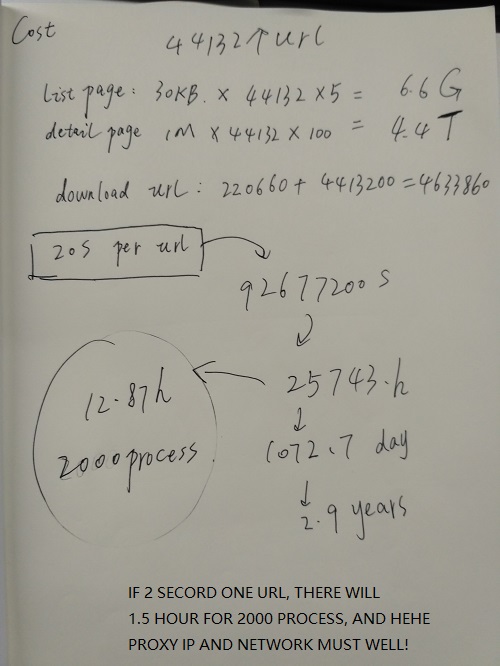 Cost
44132个url
list page: 30KB. × 44132 × 5 = 6.6 G
detail page 1M × 44132 × 100 = 4.4 T
download url: 220660 + 4413200 = 4633860
20S per url
92677200 S
25743.h
12.87h
1072.7 day
2000process
2.9 years
IF 2 SECORD ONE URL, THERE WILL
1.5 HOUR FOR 2000 PROCESS, AND HEHE
PROXY IP AND NETWORK MUST WELL!